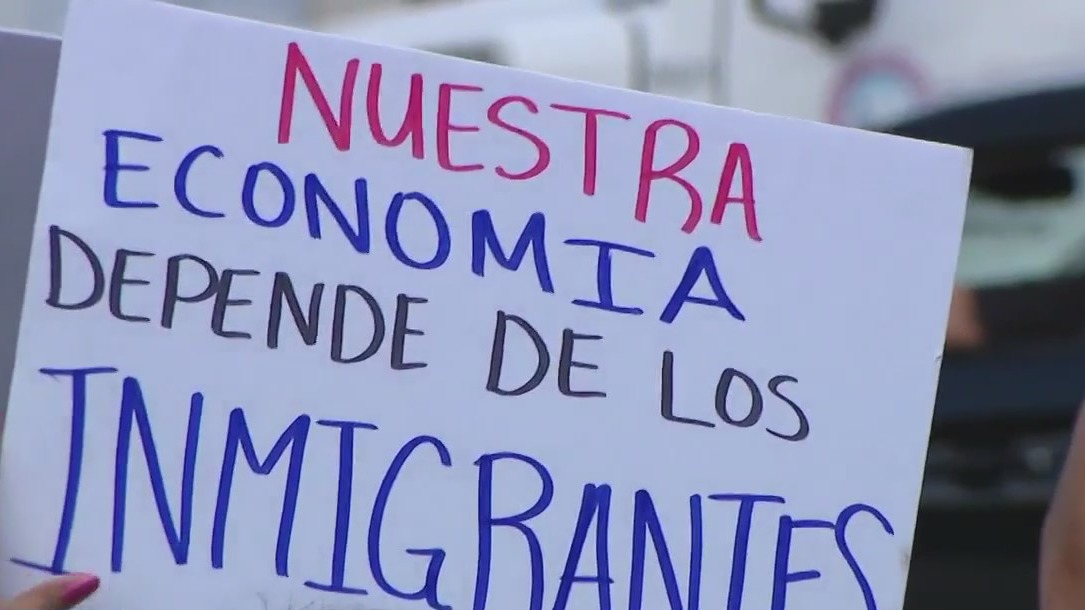 NUESTRA
ECONOMIA
DEPENDE DE LOS
INMIGRANTES